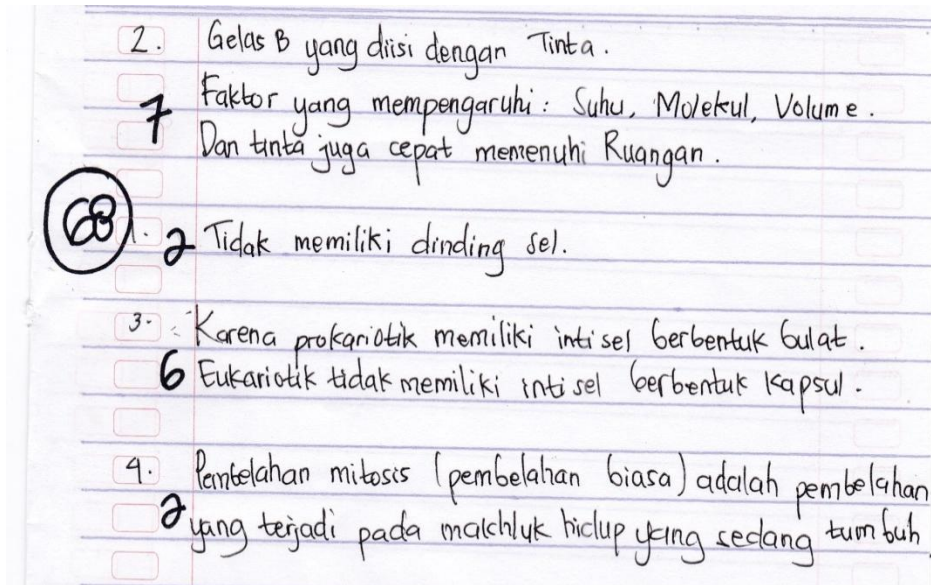 2. Gelas B yang diisi dengan Tinta.
Faktor yang mempengaruhi: Suhu, Molekul, Volume.
7
Dan tinta juga cepat memenuhi Ruangan.
68
1. 2 Tidak memiliki dinding sel.
3. Karena prokariotik memiliki inti sel berbentuk bulat.
6 Eukariotik tidak memiliki inti sel berbentuk Kapsul.
4. Pembelahan mitosis (pembelahan biasa) adalah pembelahan
2 yang terjadi pada makhluk hidup yang sedang tumbuh